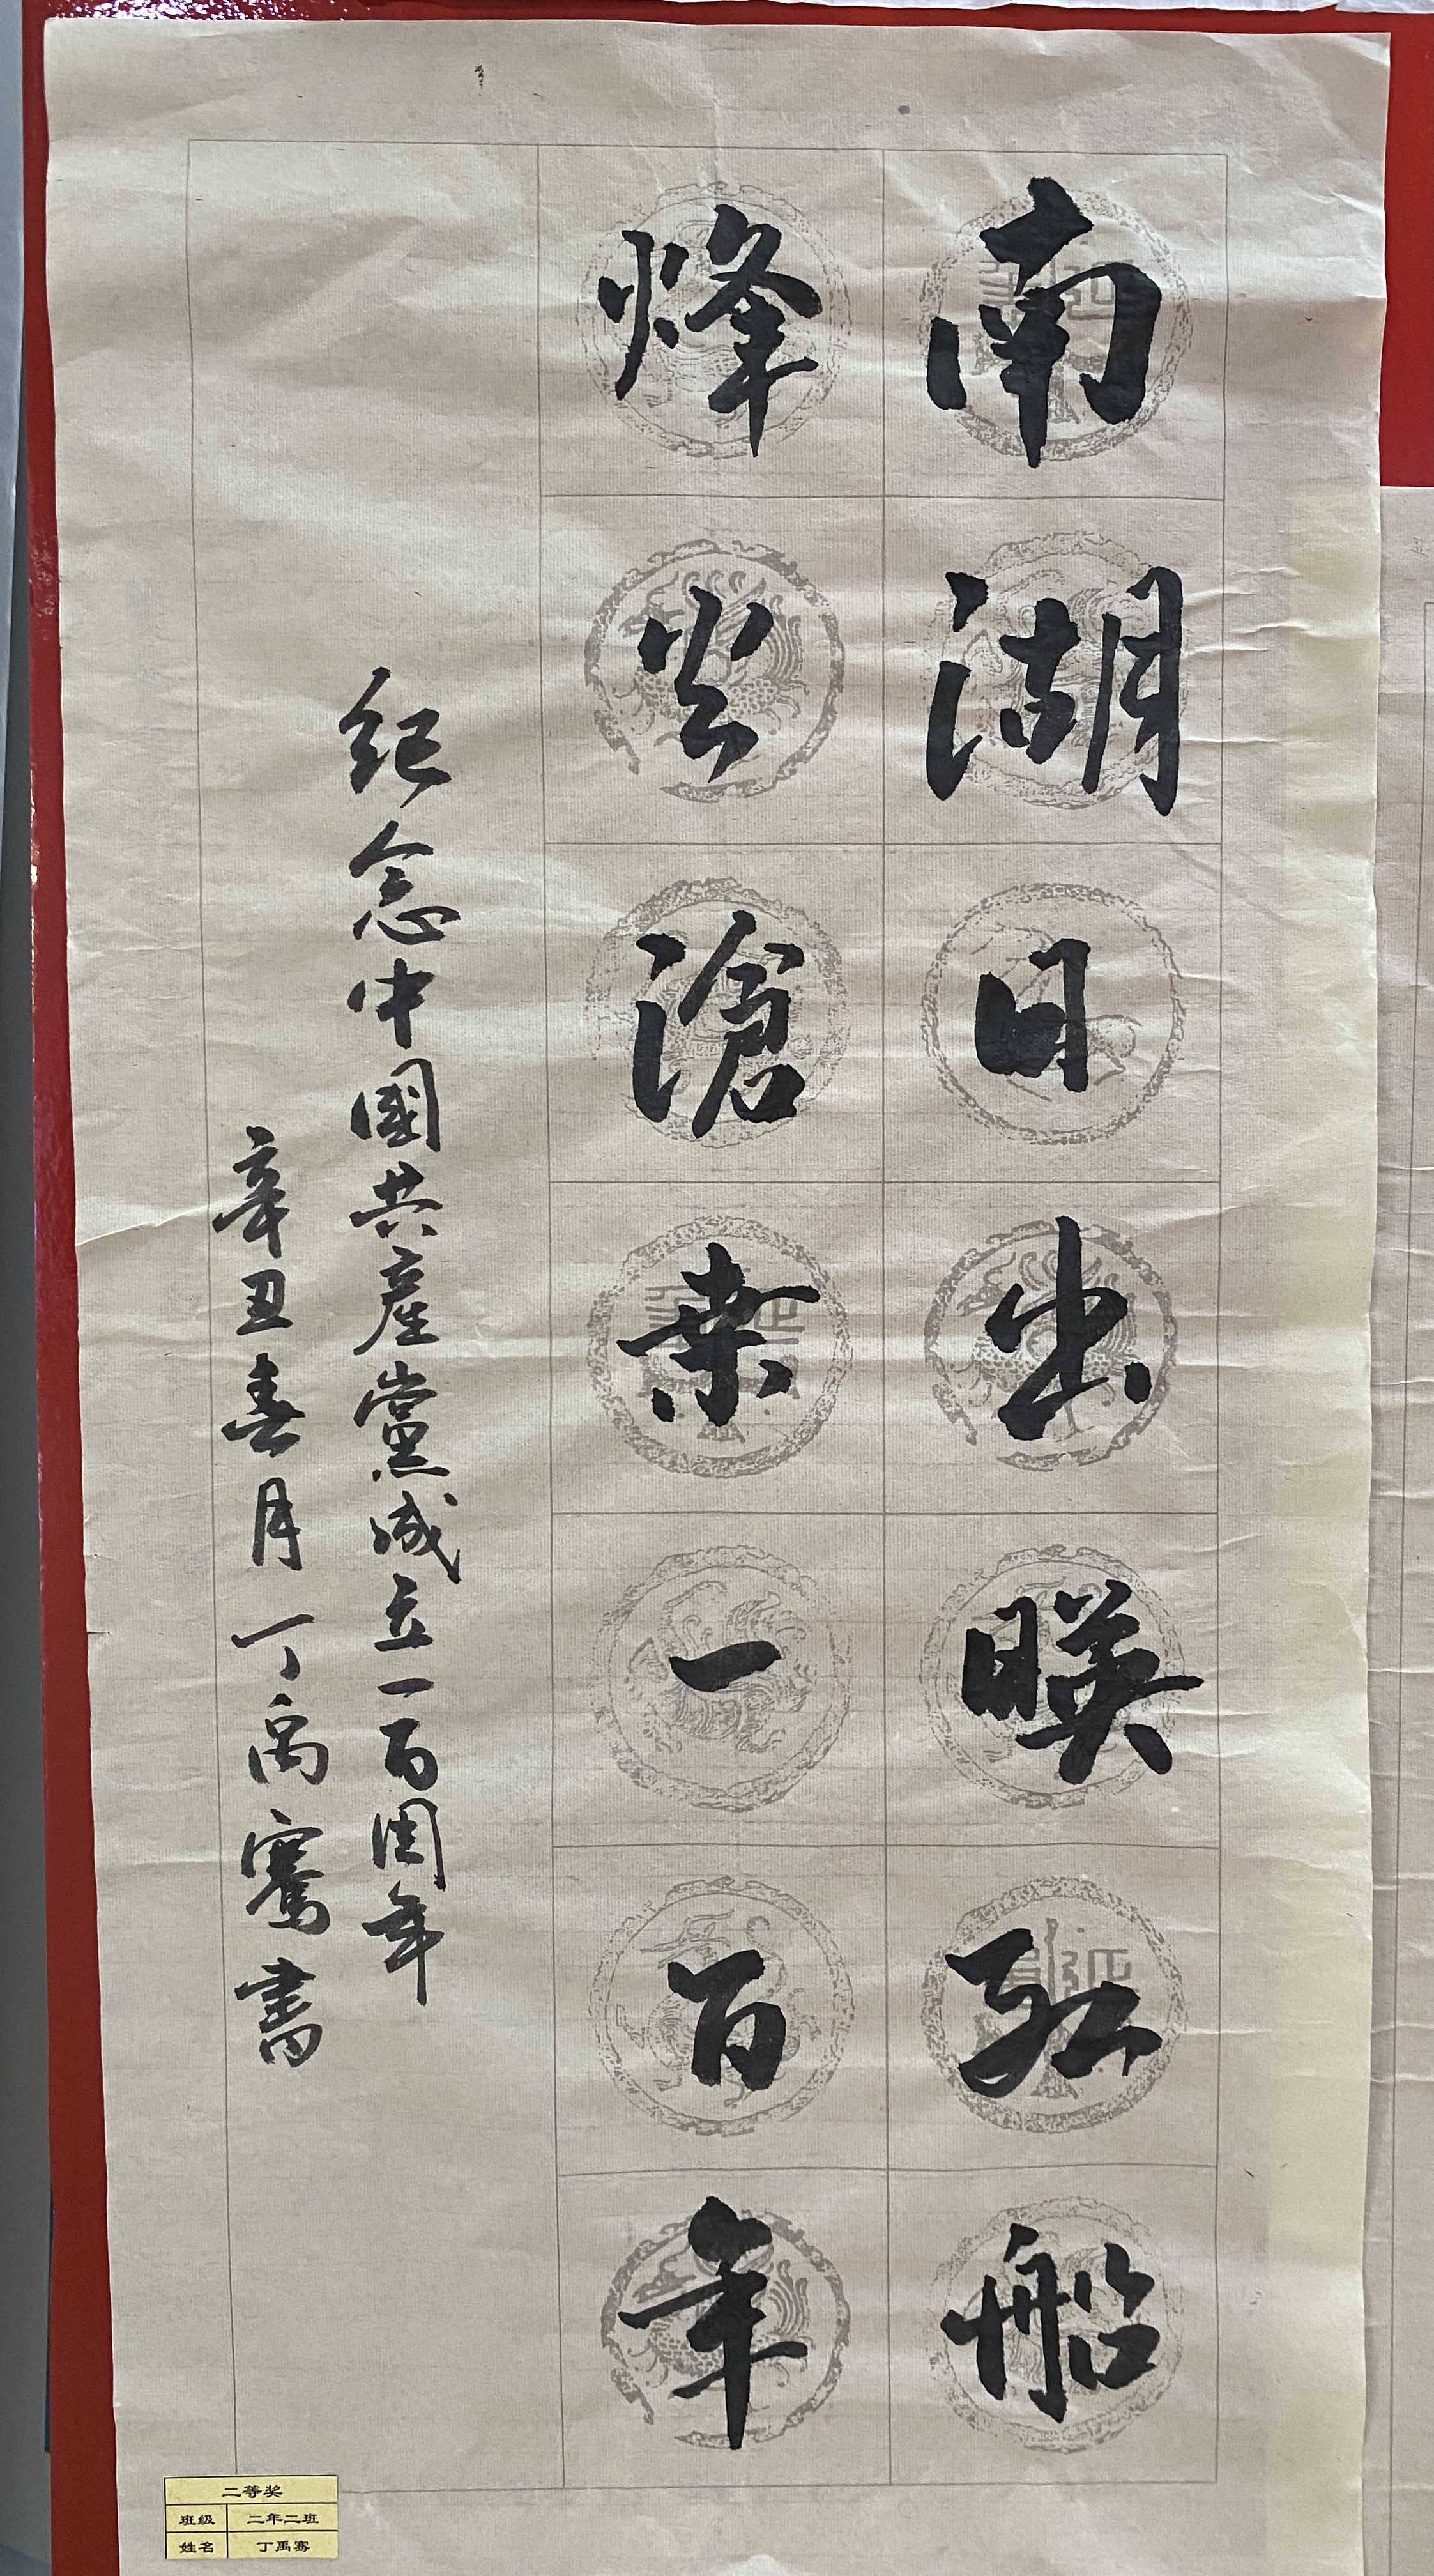 南湖日出暎紅船
烽火滄桑一百年
紀念中國共產黨成立一百周年
辛丑春月丁禹騫書
二等奖
班级 二年二班
姓名 丁禹骞